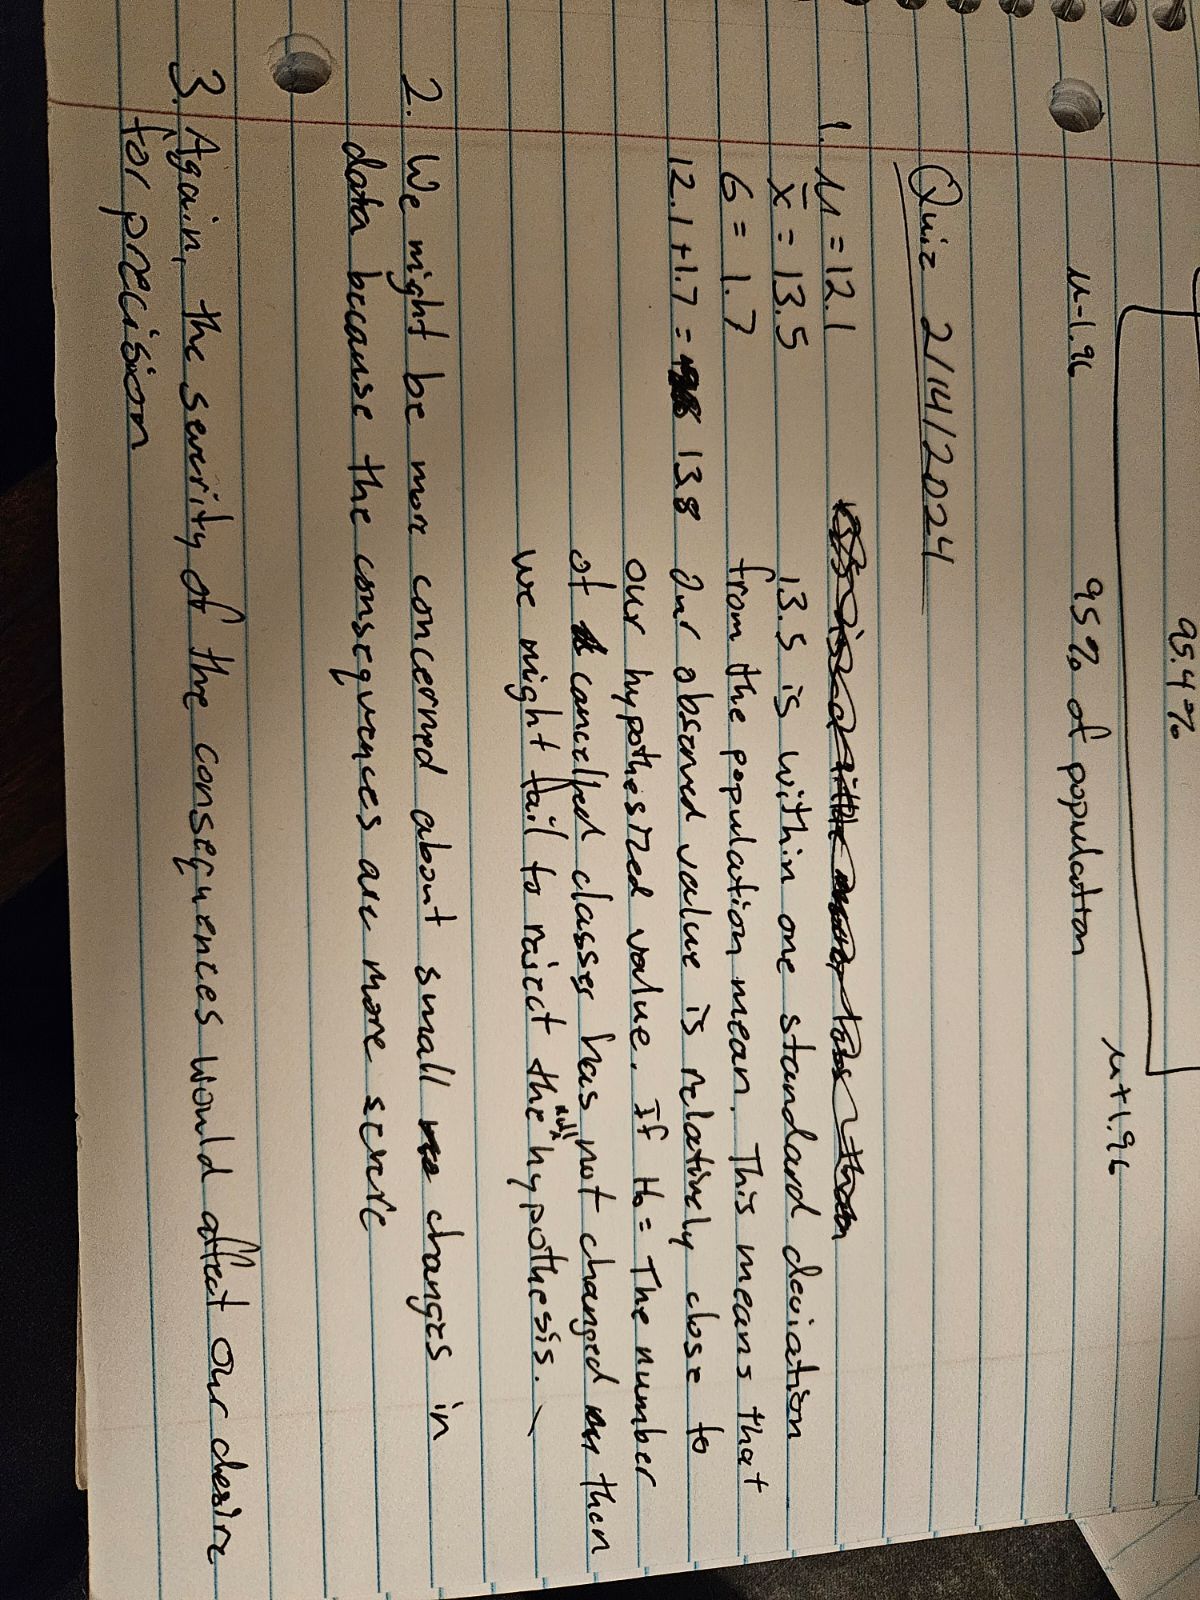 95.4%
μ-1.96 95% of population μ+1.96
Quiz 2/14/2024
1. μ = 12.1
x̄ = 13.5 13.5 is within one standard deviation
6 = 1.7 from the population mean. This means that
12.1 + 1.7 = 13.8 Our observed value is relatively close to
our hypothesized value. If H₀ = The number
of cancelled classes has not changed then
we might fail to reject the null hypothesis.
2. We might be more concerned about small changes in
data because the consequences are more severe
3. Again, the severity of the consequences would affect our desire
for precision